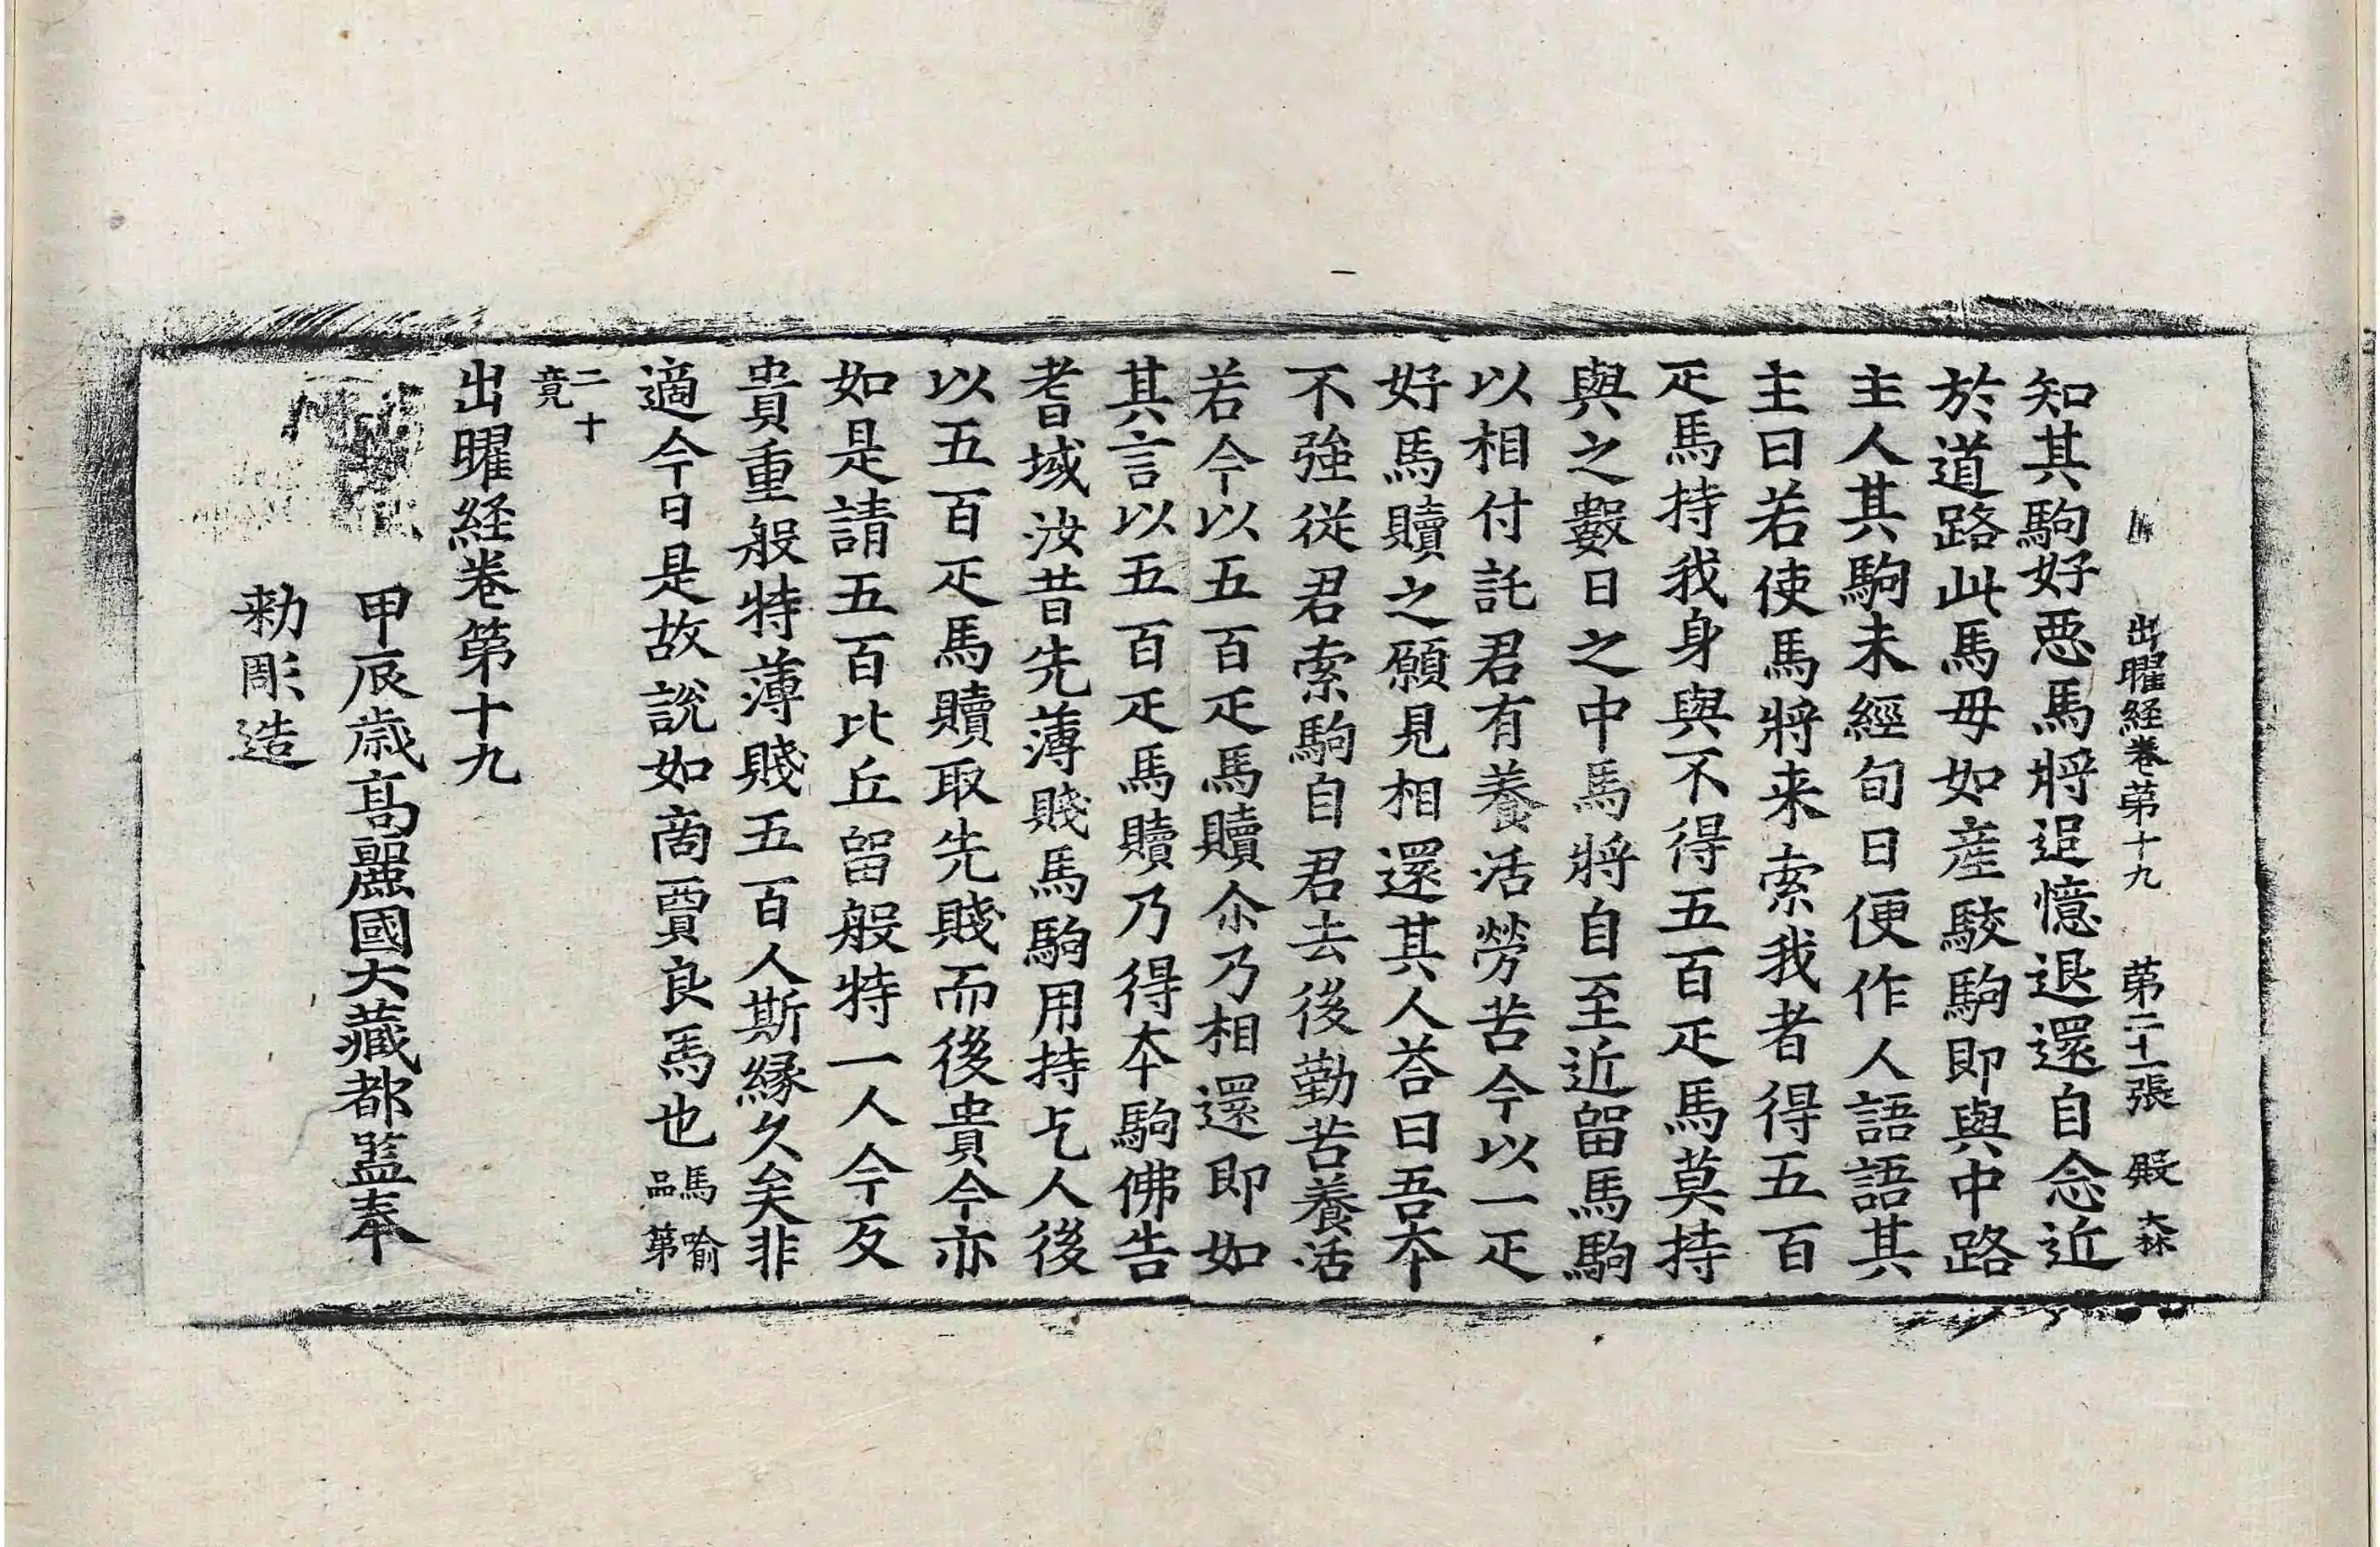 出曜経卷第十九　第二十一張　殿
知其駒好惡馬將追憶退還自念近
於道路此馬母如産駮駒即與中路
主人其駒未經旬日便作人語語其
主曰若使馬將来索我者得五百
疋馬持我身與不得五百疋馬莫持
與之數日之中馬將自至近留馬駒
以相付託君有養活勞苦今以一疋
好馬贖之願見相還其人荅曰吾本
不強從君索駒自君去後勤苦養活
若今以五百疋馬贖尒乃相還即如
其言以五百疋馬贖乃得本駒佛告
耆域汝昔先薄賤馬駒用持乞人後
以五百疋馬贖取先賤而後貴今亦
如是請五百比丘留般特一人今反
貴重般特薄賤五百人斯緣久矣非
適今日是故說如商賈良馬也馬喻品第
二十竟
出曜経卷第十九
甲辰歳髙麗國大藏都監奉
勑彫造